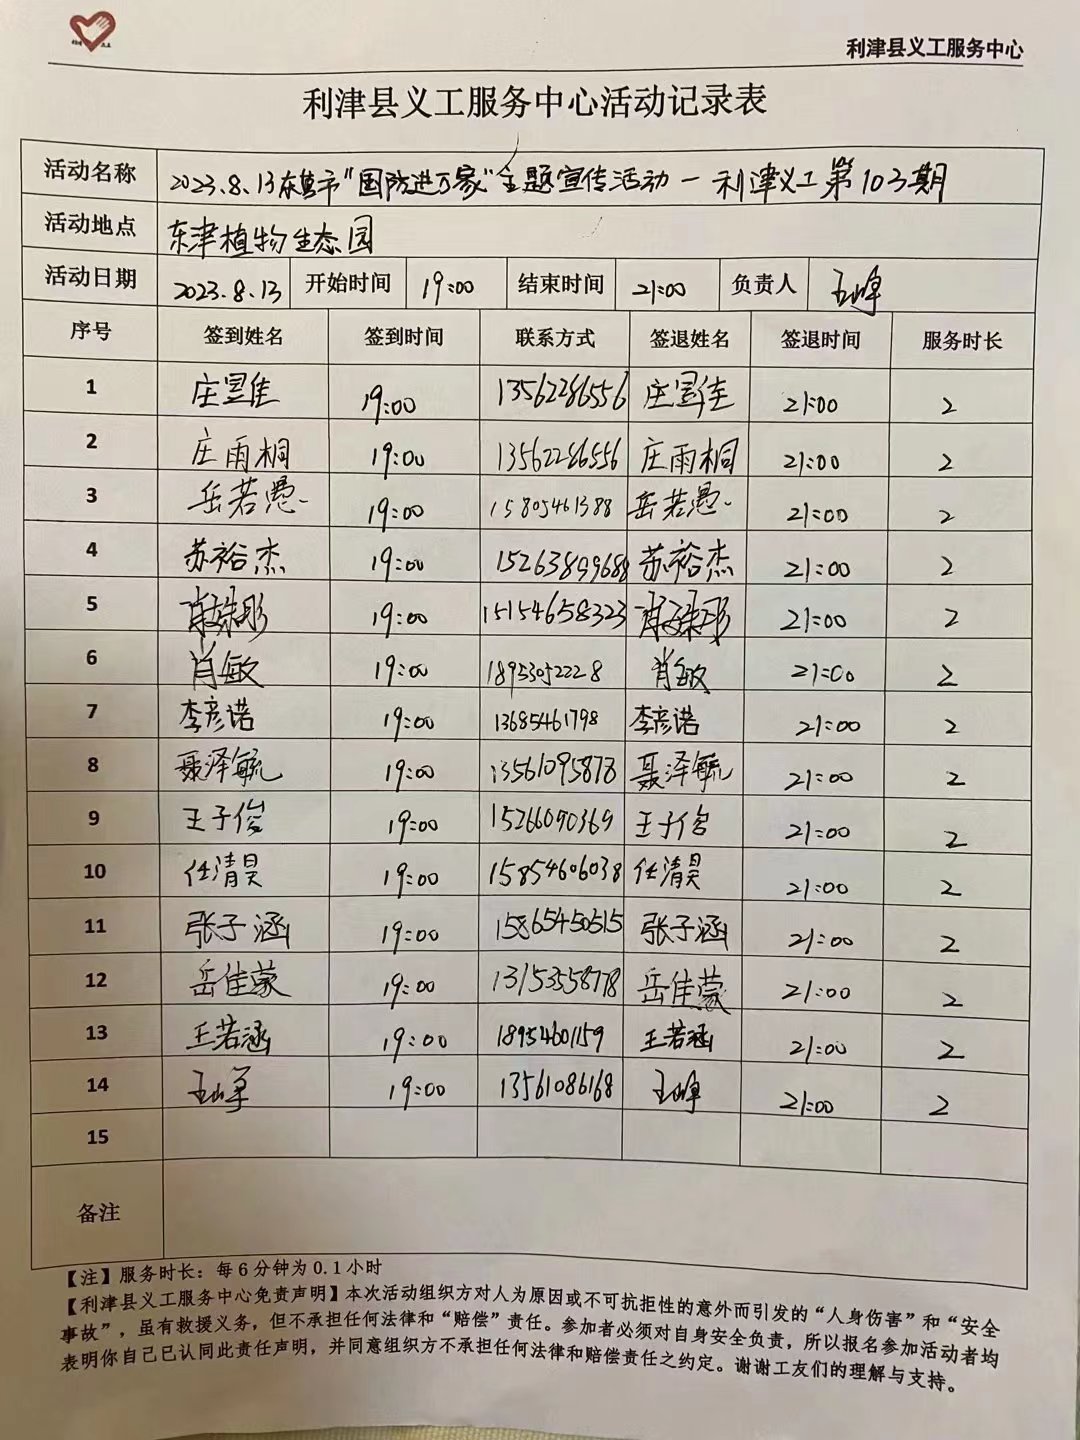 利津县义工服务中心
利津县义工服务中心活动记录表
活动名称 2023.8.13东营市“国防进万家”主题宣传活动一利津义工第103期
活动地点 东津植物生态园
活动日期 2023.8.13 开始时间 19:00 结束时间 21:00 负责人 王峰
序号 签到姓名 签到时间 联系方式 签退姓名 签退时间 服务时长
1 庄宣佳 19:00 13562286556 庄宣佳 21:00 2
2 庄雨桐 19:00 13562286556 庄雨桐 21:00 2
3 岳若愚 19:00 15805461388 岳若愚 21:00 2
4 苏裕杰 19:00 15263899688 苏裕杰 21:00 2
5 19:00 15154658323 21:00 2
6 肖敏 19:00 18953052228 肖敏 21:00 2
7 李彦诺 19:00 13685461798 李彦诺 21:00 2
8 聂泽毓 19:00 13561095878 聂泽毓 21:00 2
9 王子俊 19:00 15266090369 王子俊 21:00 2
10 任清昊 19:00 15854606038 任清昊 21:00 2
11 张子涵 19:00 15865450515 张子涵 21:00 2
12 岳佳蒙 19:00 13153558778 岳佳蒙 21:00 2
13 王若涵 19:00 18954601159 王若涵 21:00 2
14 王峰 19:00 13561086168 王峰 21:00 2
15
备注
【注】服务时长：每6分钟为0.1小时
【利津县义工服务中心免责声明】本次活动组织方对人为原因或不可抗拒性的意外而引发的“人身伤害”和“安全
事故”，虽有救援义务，但不承担任何法律和“赔偿”责任。参加者必须对自身安全负责，所以报名参加活动者均
表明你自己已认同此责任声明，并同意组织方不承担任何法律和赔偿责任之约定。谢谢工友们的理解与支持。